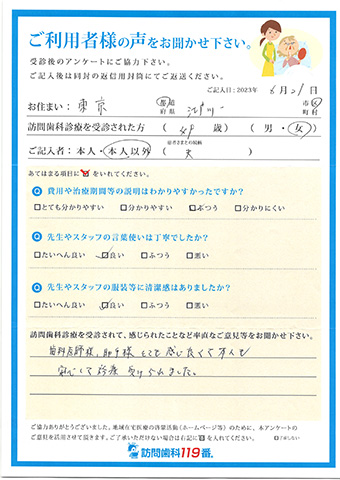 ご利用者様の声をお聞かせ下さい。
受診後のアンケートにご協力下さい。
ご記入後は同封の返信用封筒にてご返送ください。
ご記入日:2023年 6月21日
お住まい: 東京 都道府県 江戸川 市区町村
訪問歯科診療を受診された方 ( 歳) (男・女)
ご記入者:本人・本人以外 (患者さまとの続柄 夫 )
あてはまる項目に☑をいれてください。
Q 費用や治療期間等の説明はわかりやすかったですか?
□とても分かりやすい □分かりやすい ☑ふつう □分かりにくい
Q 先生やスタッフの言葉使いは丁寧でしたか?
□たいへん良い ☑良い □ふつう □悪い
Q 先生やスタッフの服装等に清潔感はありましたか?
□たいへん良い ☑良い □ふつう □悪い
訪問歯科診療を受診されて、感じられたことなど率直なご意見等をお聞かせ下さい。
歯科医師様、助手様 とても感じ良くて本人も
安心して診療 受けられました。
ご協力ありがとうございました。地域在宅医療の啓蒙活動(ホームページ等)のために、本アンケートの
ご意見を活用させて頂きます。ご了承いただけない場合は右記に☑を入れてください。 □了承しない
訪問歯科119番。